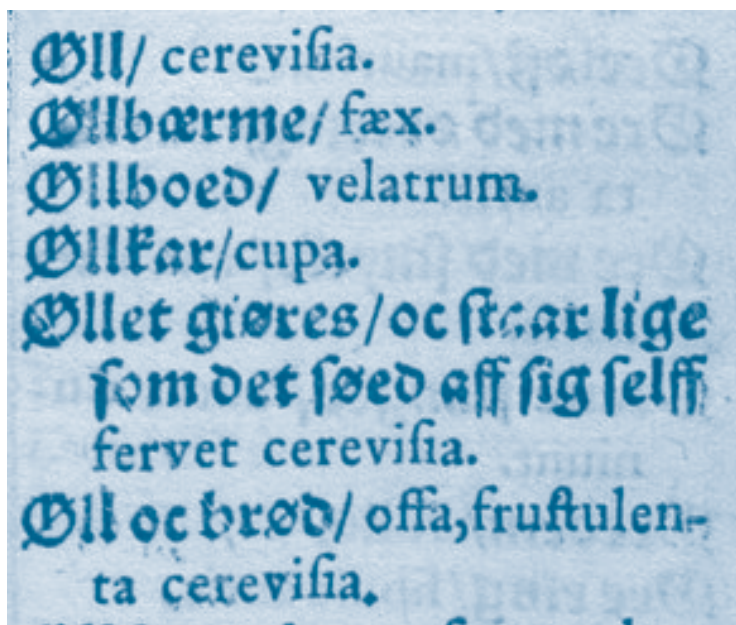 Øll/ cereviſia.
Øllbærme/ fæx.
Øllboed/ velatrum.
Øllkar/cupa.
Øllet giøres/oc ſtaar lige
ſom det ſøed aff ſig ſelff
fervet cereviſia.
Øll oc brød/ offa,fruſtulen-
ta cereviſia.